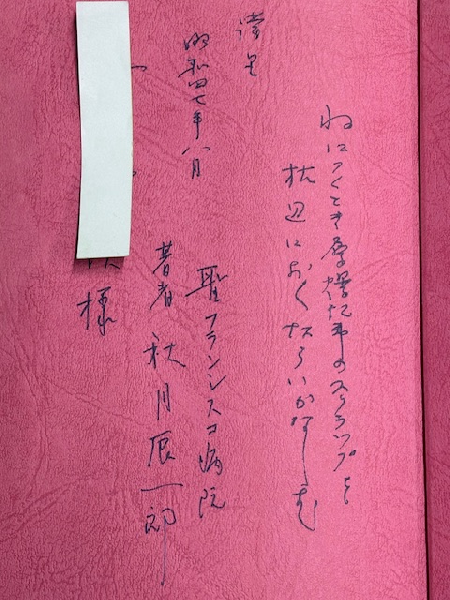 ねにつくとき原爆記事のスクラップを
枕辺におく
謹呈
昭和四七年八月
聖フランシスコ病院
著者 秋月辰一郎
様